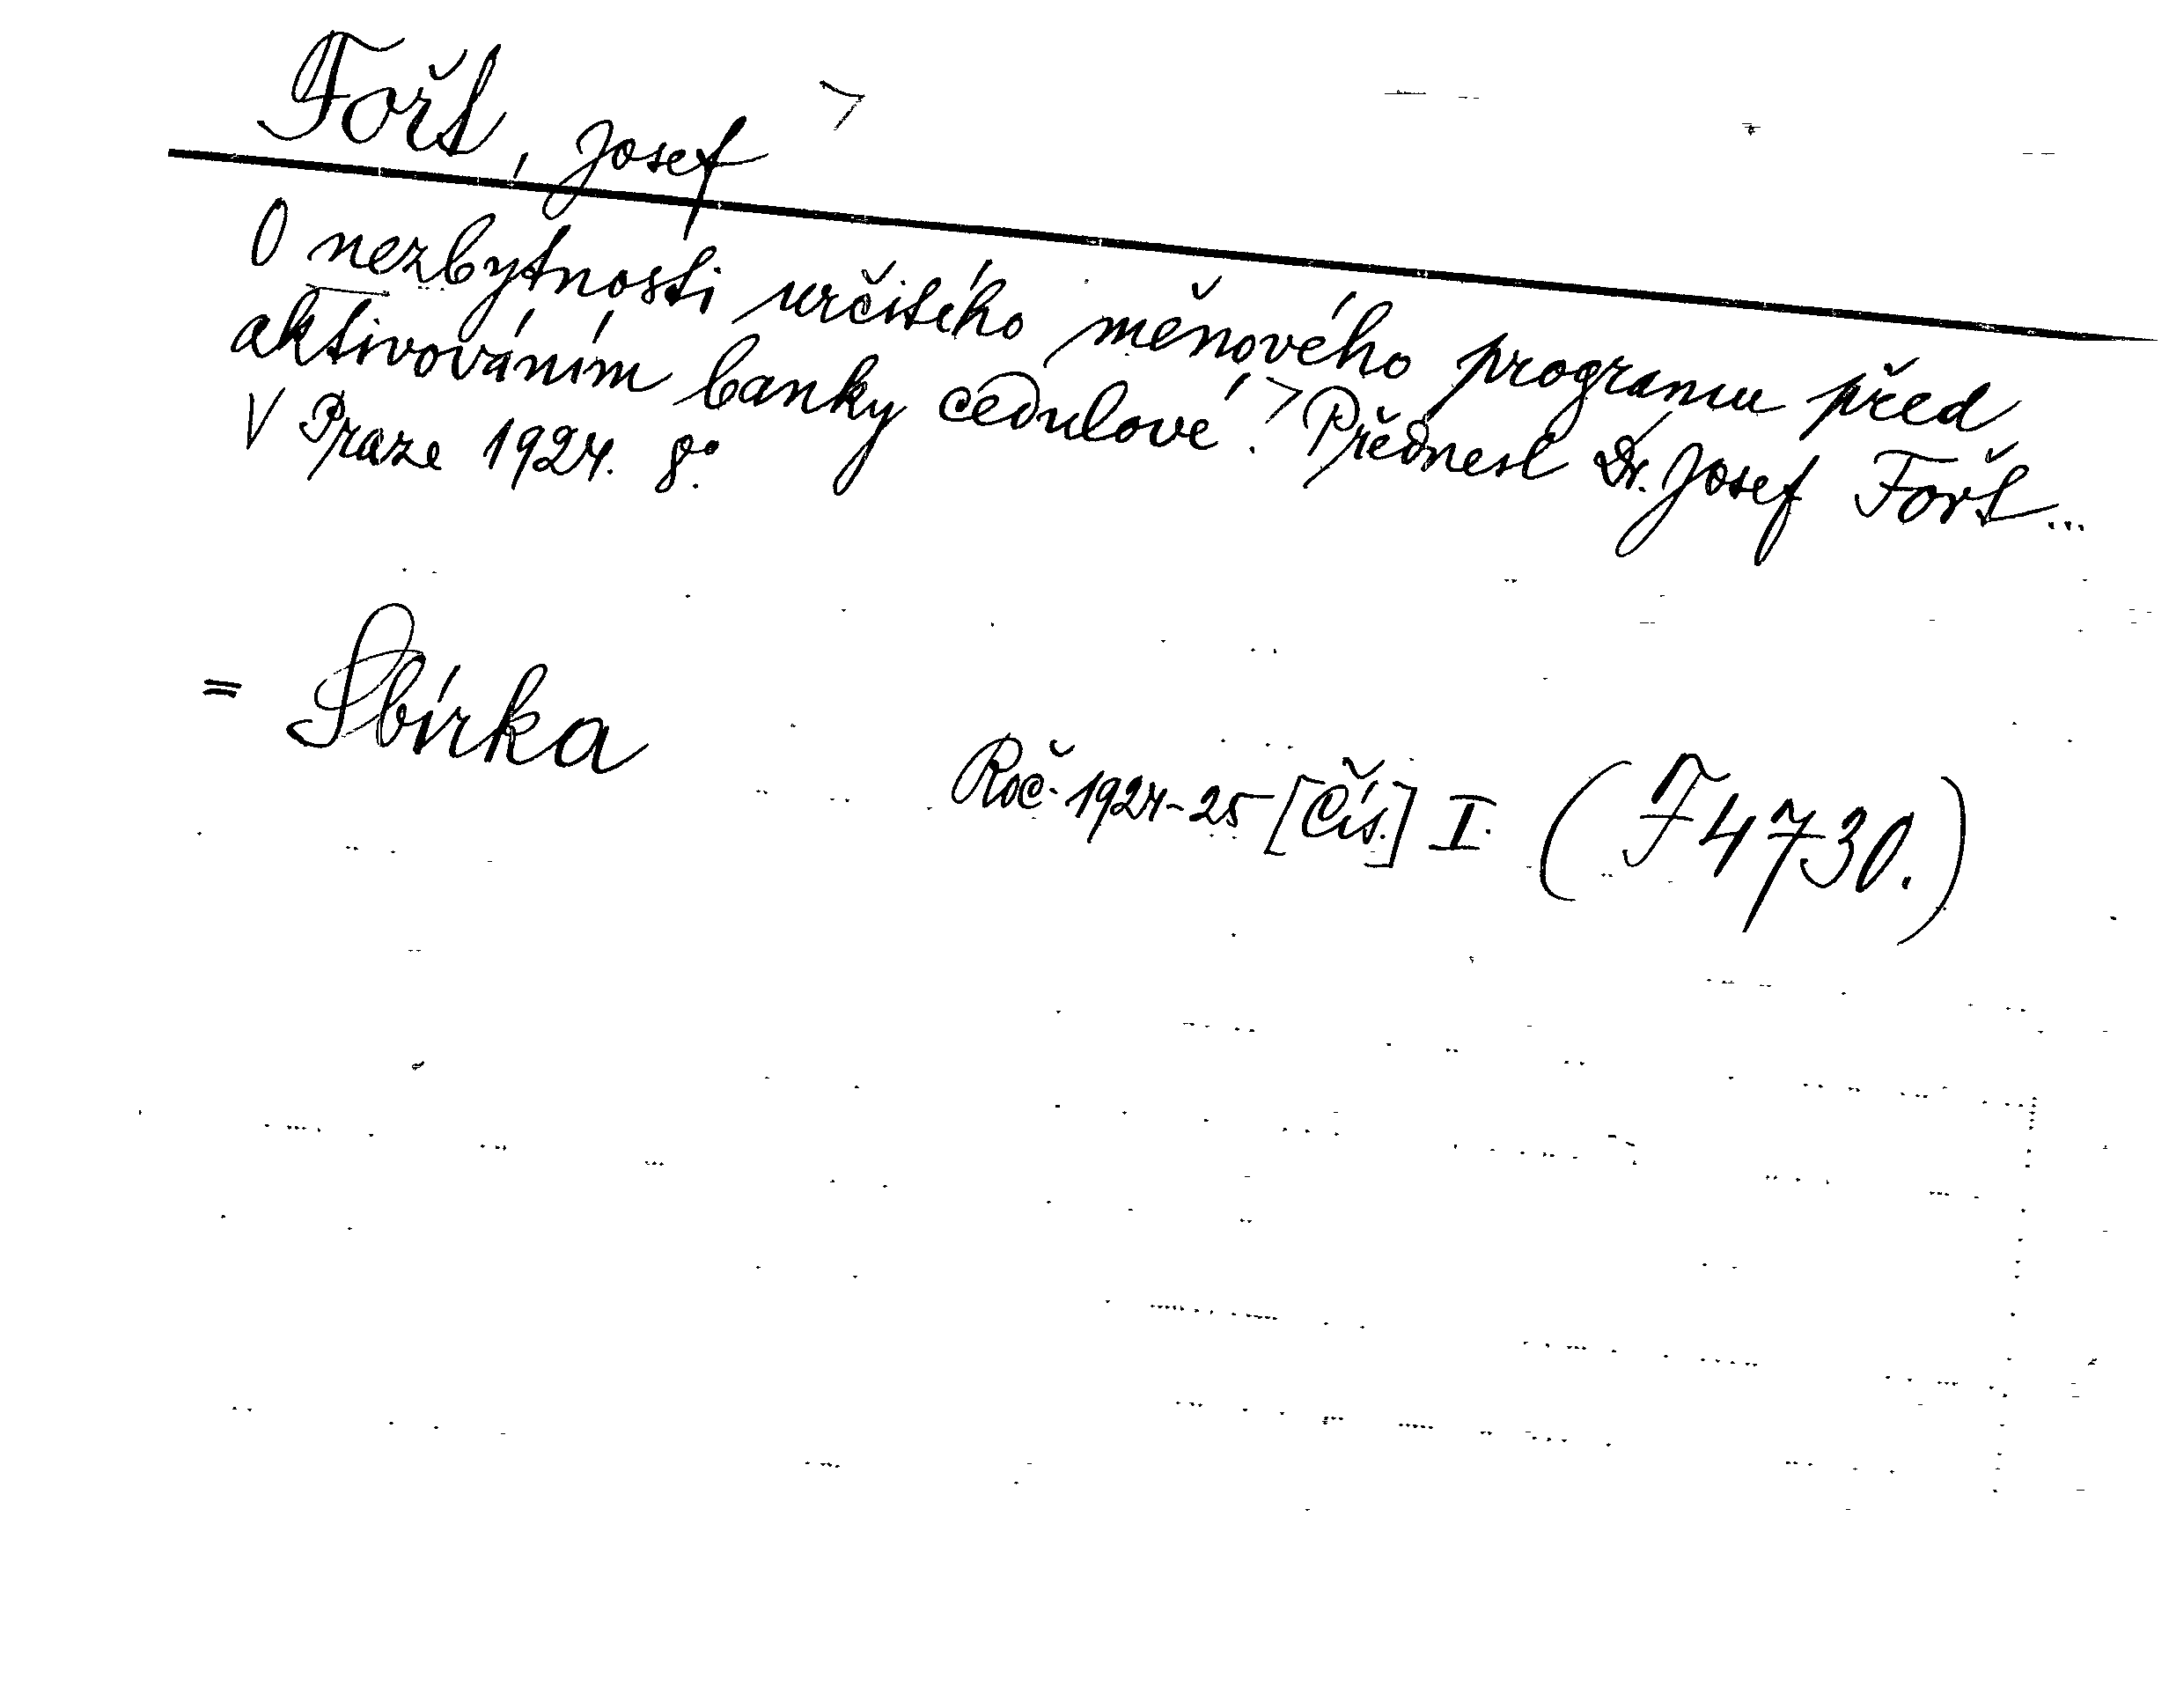 Fořt, Josef
O nezbytnosti určitého měnového programu před
aktivováním banky cedulové. Přednesl Dr. Josef Fořt...
V Praze 1924. 8°.
= Sbírka
Roč. 1924-25 [Čís.] I. (F 4730.)